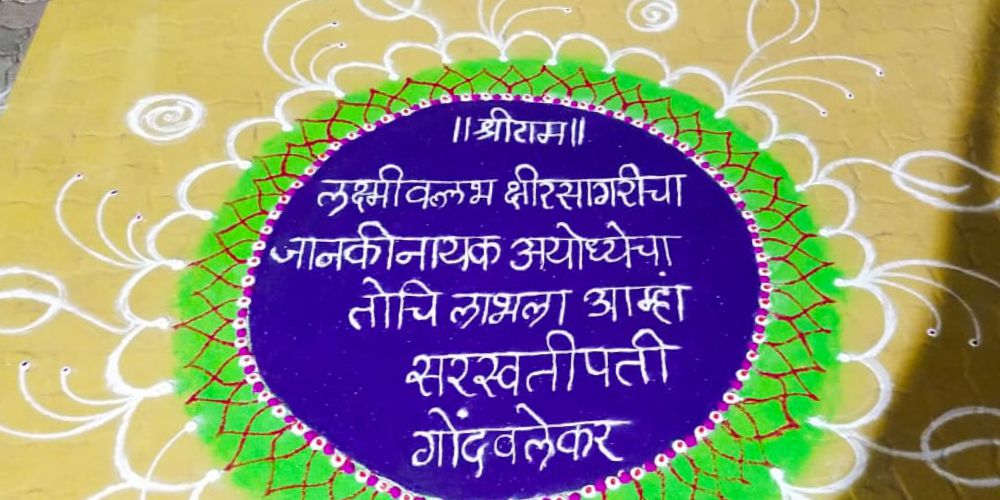 ॥श्रीराम॥
लक्ष्मीवल्लभ क्षीरसागरीचा
जानकीनायक अयोध्येचा
तोचि लाभला आम्हां
सरस्वतीपती
गोंदवलेकर